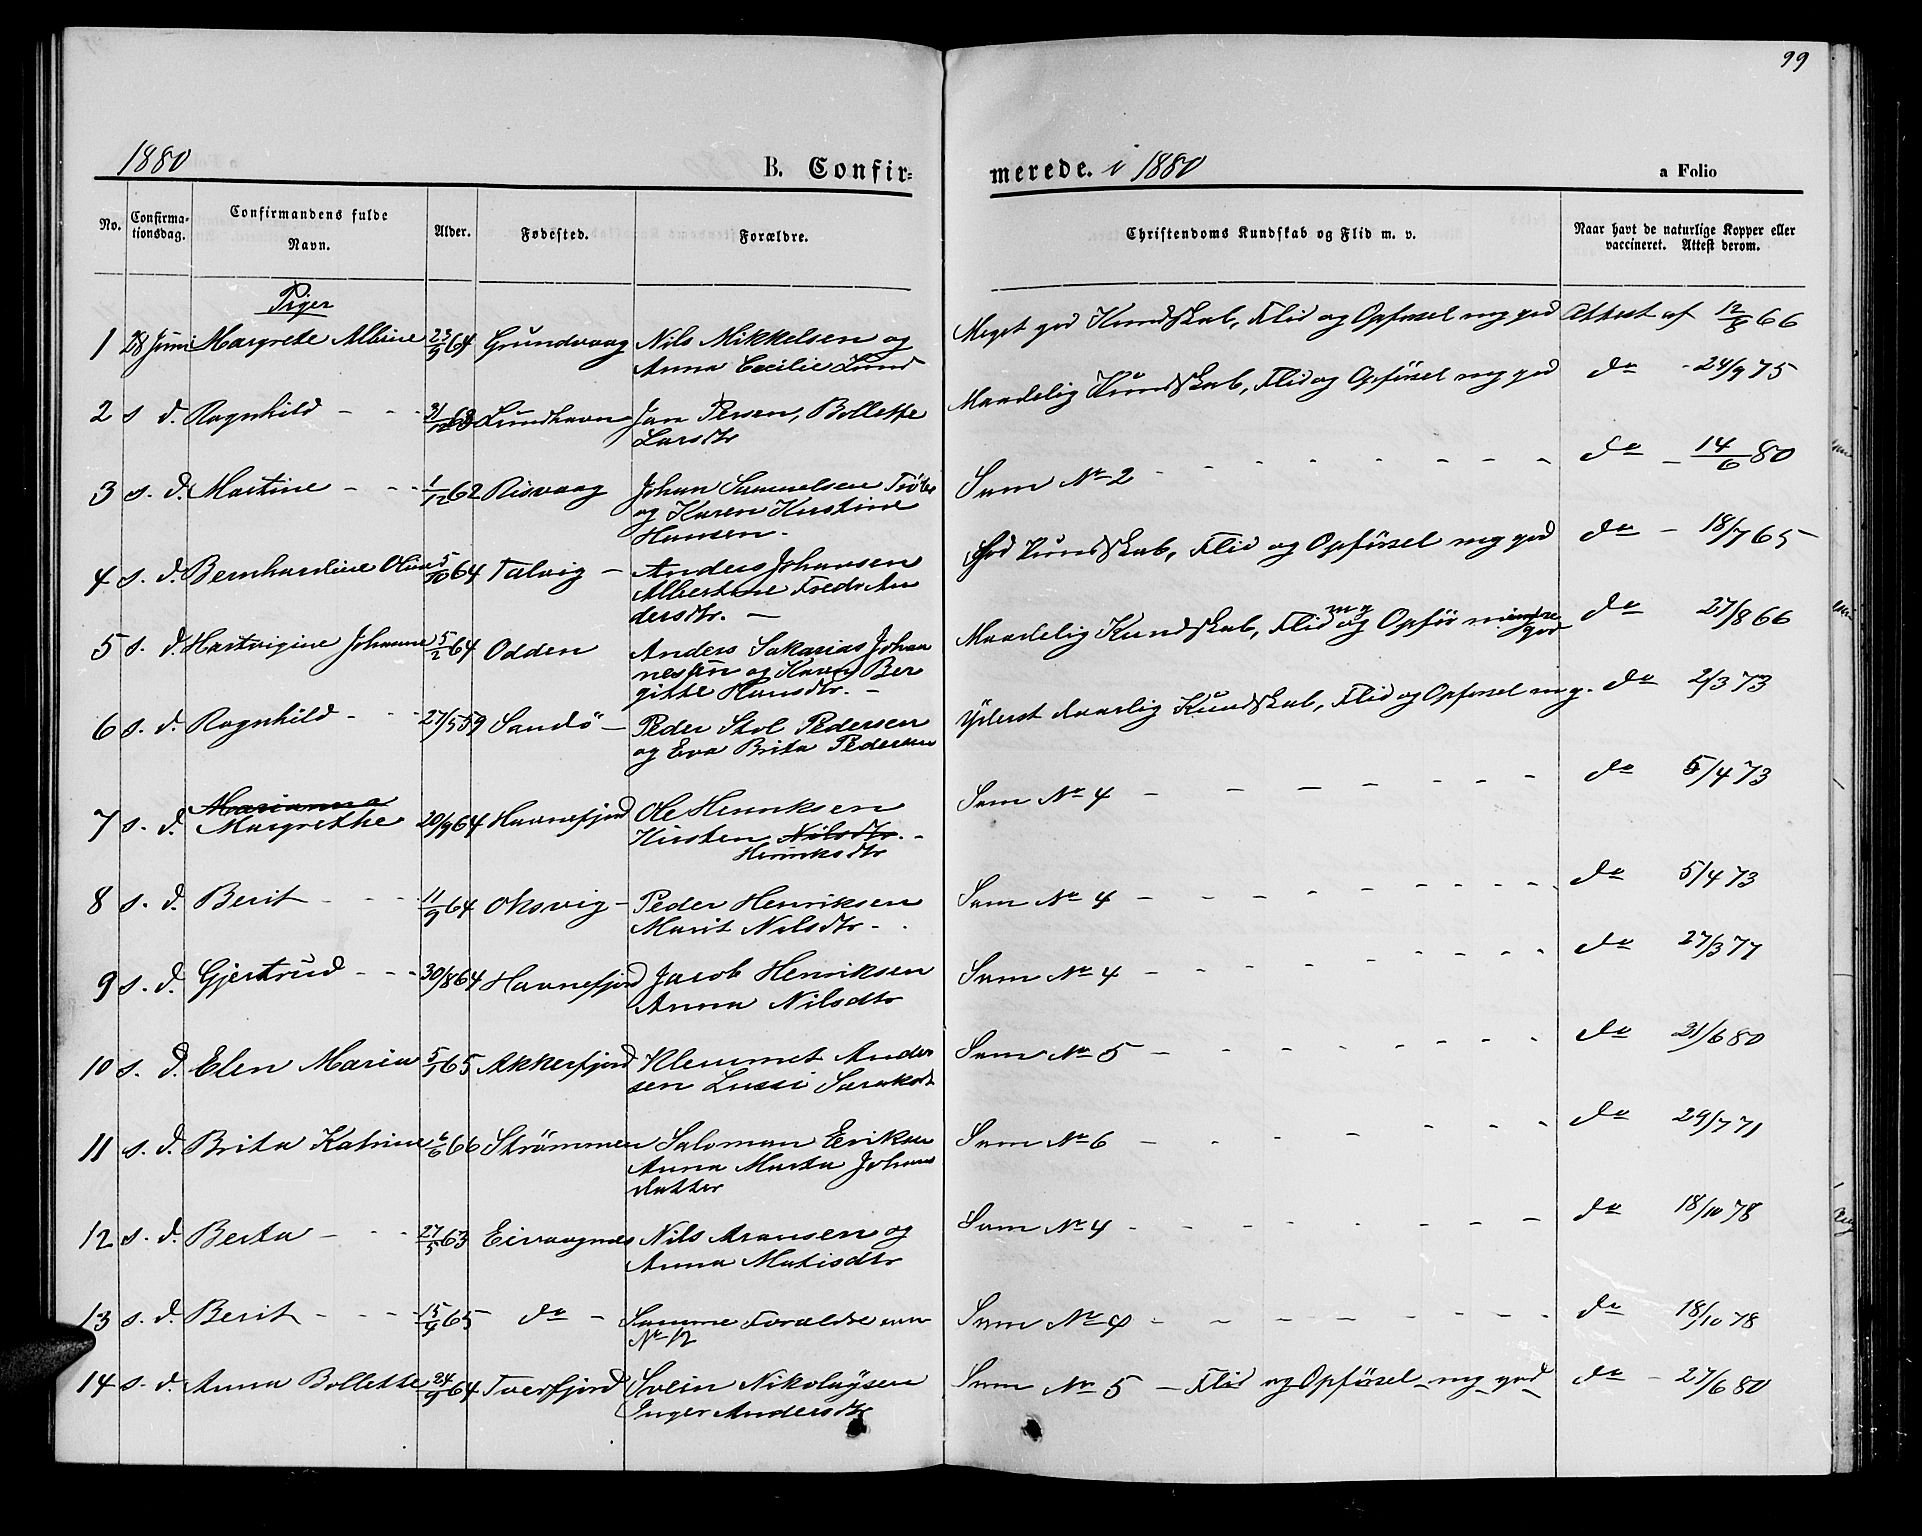 99
1880 B. Confirmerede. i 1880 a Folio
No. Confirmationsdag. Confirmandens fulde Navn. Alder. Fødested. Forældre. Christendoms Kundskab og Flid m. v. Naar havt de naturlige Kopper eller vaccineret. Attest derom.
Piger
1 28 Juni Margrete Albine 23/9 64 Grundvaag Nils Mikkelsen og Meget god Kundskab, Flid og Opførsel mg god Attest af 12/8 66
Anna Cecilie Lund
2 s d. Ragnhild - - 31/12 63 Lundhavn Jan Persen, Bollette Maadelig Kundskab, Flid og Opförsel mg god do - 24/9 75
Larsdtr
3 s. d. Martine - - 1/12 62 Risvaag Johan Samuelsen Som No 2 - - - do - 14/6 80
og Karen Kirstine
Hansen.
4 s. d. Bernhardine 5/10 64 Talvig - Anders Johansen God Kundskab, Flid og Opförsel mg god do - 18/7 65
Albertine Fredr An
dersdtr. -
5 s. d. Hartvigine Johanne 5/2 64 Odden Anders Sakarias Johan Maadelig Kundskab, Flid mg og Opför mindre god do 27/8 66
nesen og Karen Ber
gitte Hansdtr. -
6 s. d. Ragnhild - - 27/5 59 Sandö - Peder Pedersen Yderst daarlig Kundskab, Flid og Opførsel mg. do 2/3 73
og Eva Brita Pedersen
7 s. d. Marianna Margrethe 20/9 64 Havnefjord Ole Henriksen Som No 4 - - - do 5/4 73
Kirsten Nilsdtr. -
Henriksdtr
8 s. d. Berit - - 11/9 64 Oksvig - Peder Henriksen Som No 4 - - - do 5/4 73
Marit Nilsdtr -
9 s. d. Gjertrud - - - 30/8 64 Havnefjord Jacob Henriksen Som No 4 - - - do 27/3 77
Anna Nilsdtr
10 s. d. Elen Maria 5/1 65 Akkerfjord Klemmet Ander Som No 5 - - - do 21/6 80
sen Lussi
11 s. d. Brita Katrine 6/6 66 Strømmen Saloman Eriksen Som No 6 - - - do 29/7 71
Anna Marta Johans
datter
12 s. d. Berta - - 27/5 63 Nils Aransen og Som No 4 - - - do 18/10 78
Anna Matisdtr
13 s. d. Berit - - 15/4 65 do - Samme Foraldre som Som No 4 - - - do 18/10 78
No 12
14 s. d. Anna Bollette 24/9 64 Tverfjord Svein Nikolaysen Som No 5 - Flid og Opförsel mg god do - 27/6 80
Inger Andersdtr